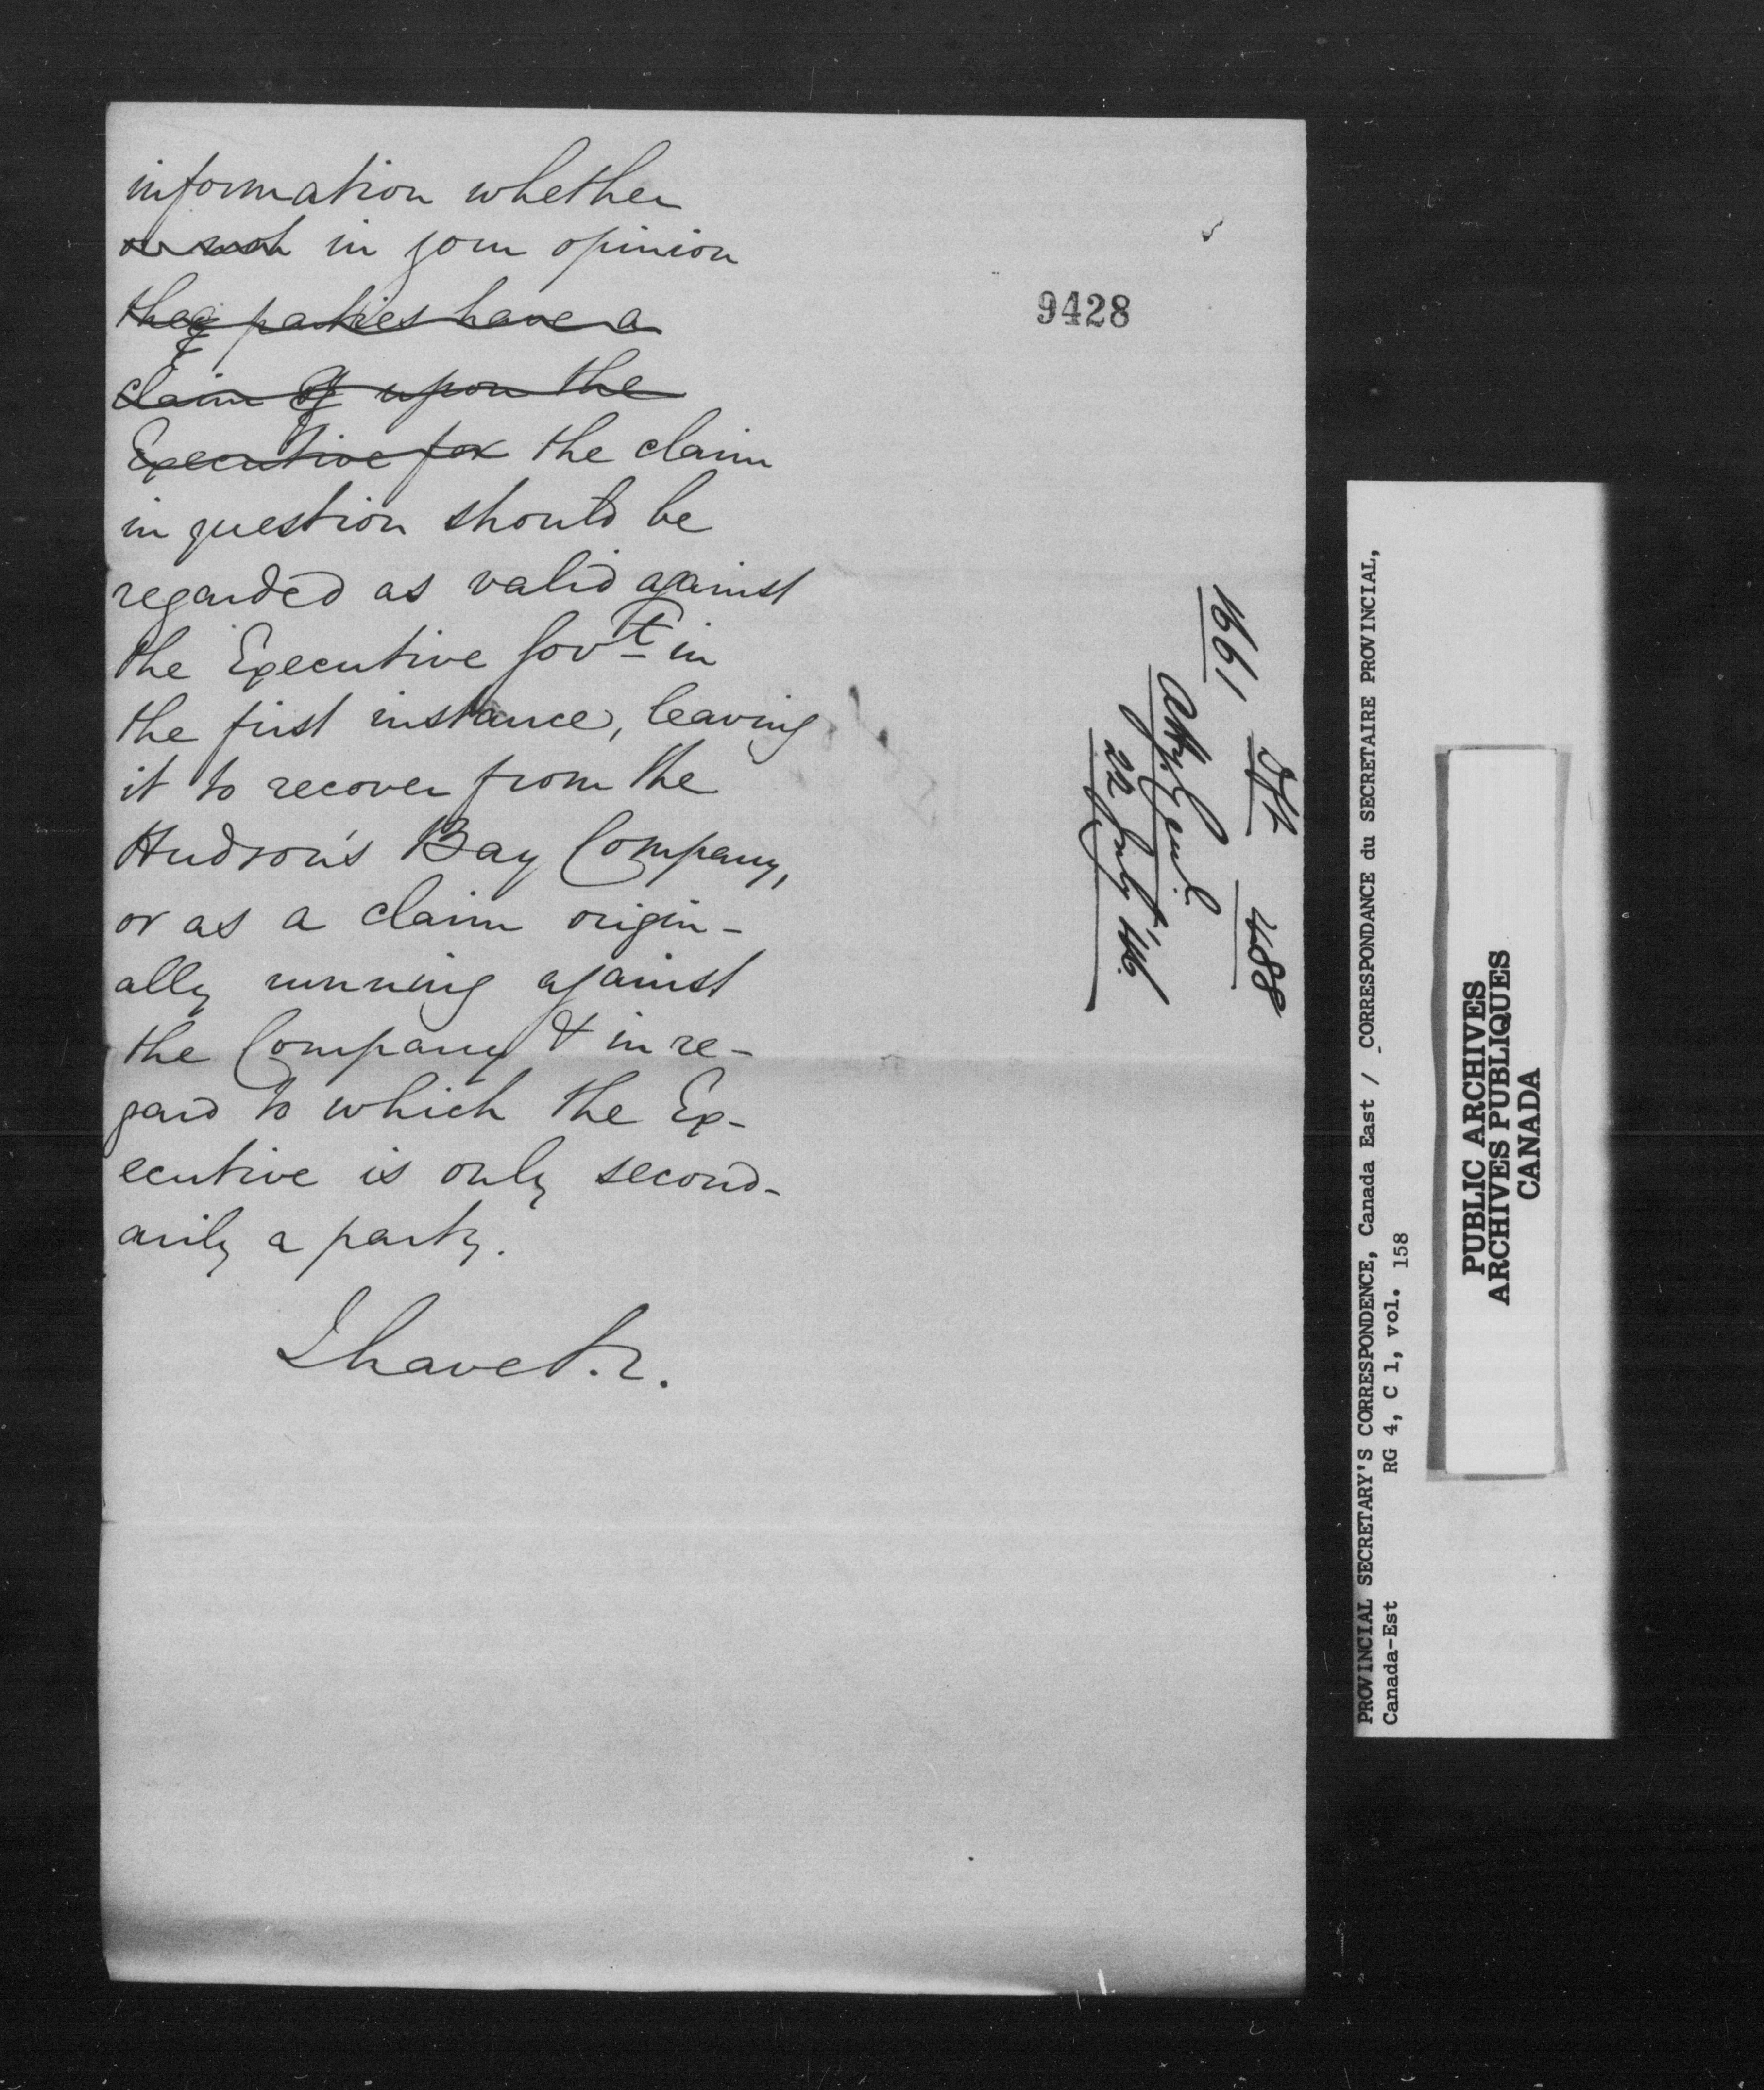 information whether
or not in your opinion
the parties have a
claim of upon the
Executive for the claim
in question should be
regarded as valid against
the Executive Govt in
the first instance, leaving
it to recover from the
Hudson's Bay Company,
or as a claim origin-
ally running against
the Company & in re-
gard to which the Ex-
ecutive is only second-
arily a party.
I have &.
9428
Dft 488
1661
Atty Genl
22 July '46.
PROVINCIAL SECRETARY'S CORRESPONDENCE, Canada East / CORRESPONDANCE du SECRETAIRE PROVINCIAL,
Canada-Est RG 4, C 1, vol. 158
PUBLIC ARCHIVES
ARCHIVES PUBLIQUES
CANADA